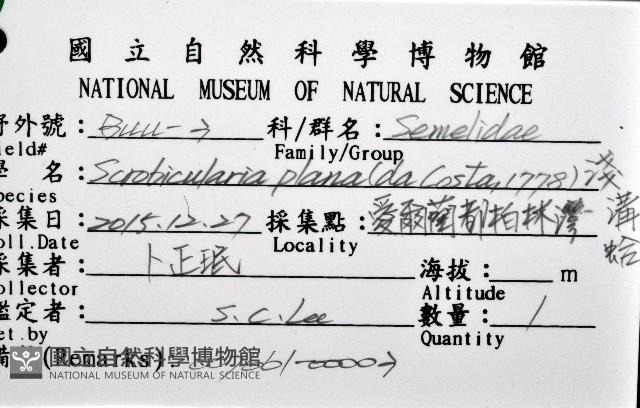 國立自然科學博物館
NATIONAL MUSEUM OF NATURAL SCIENCE
野外號: Buu-3 科/群名: Semelidae
Field# Family/Group
學 名: Scrobicularia plana (da Costa, 1778) 淺溝蛤
Species
採集日: 2015.12.27 採集點: 愛爾蘭都柏林灣
Coll.Date Locality
採集者: 卜正珉 海拔: m
Collector Altitude
鑑定者: S.C.Lee 數量: 1
Det.by Quantity
(Remarks).
國立自然科學博物館
NATIONAL MUSEUM OF NATURAL SCIENCE